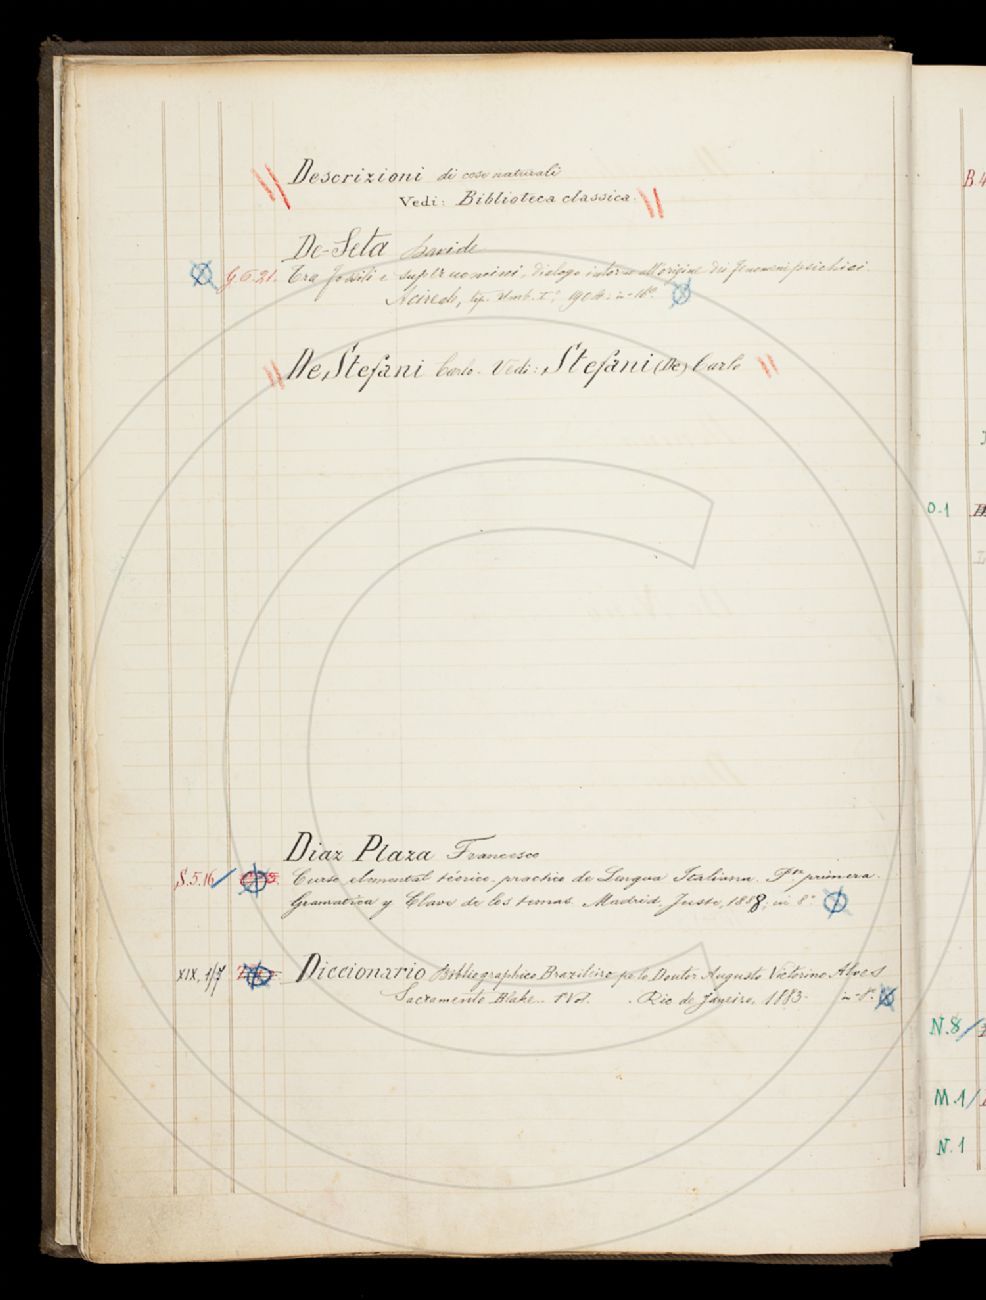 Descrizioni di cose naturali
Vedi: Biblioteca classica.
De-Seta Davide
G.6.21. Tra fossili e superuomini, dialogo intorno all'origine dei fenomeni psichici.
Acireale, tip. Umb. I.° 904. in-16.°
De Stefani Carlo. Vedi: Stefani (De) Carlo
Diaz Plaza Francesco
S.5.16 Curso elemental téorico-practico de Lengua Italiana. Pte primera.
Gramatica y Clave de los temas. Madrid, Juste, 1888, in 8.°
XIX, 1/7 Diccionario Bibliographico Brazileiro pelo Doutor Augusto Victorino Alves
Sacramento Blake. 1° Vol. Rio de Janeiro, 1883. in-8.°
B.4
O.1
N.8/
M.1/
N.1